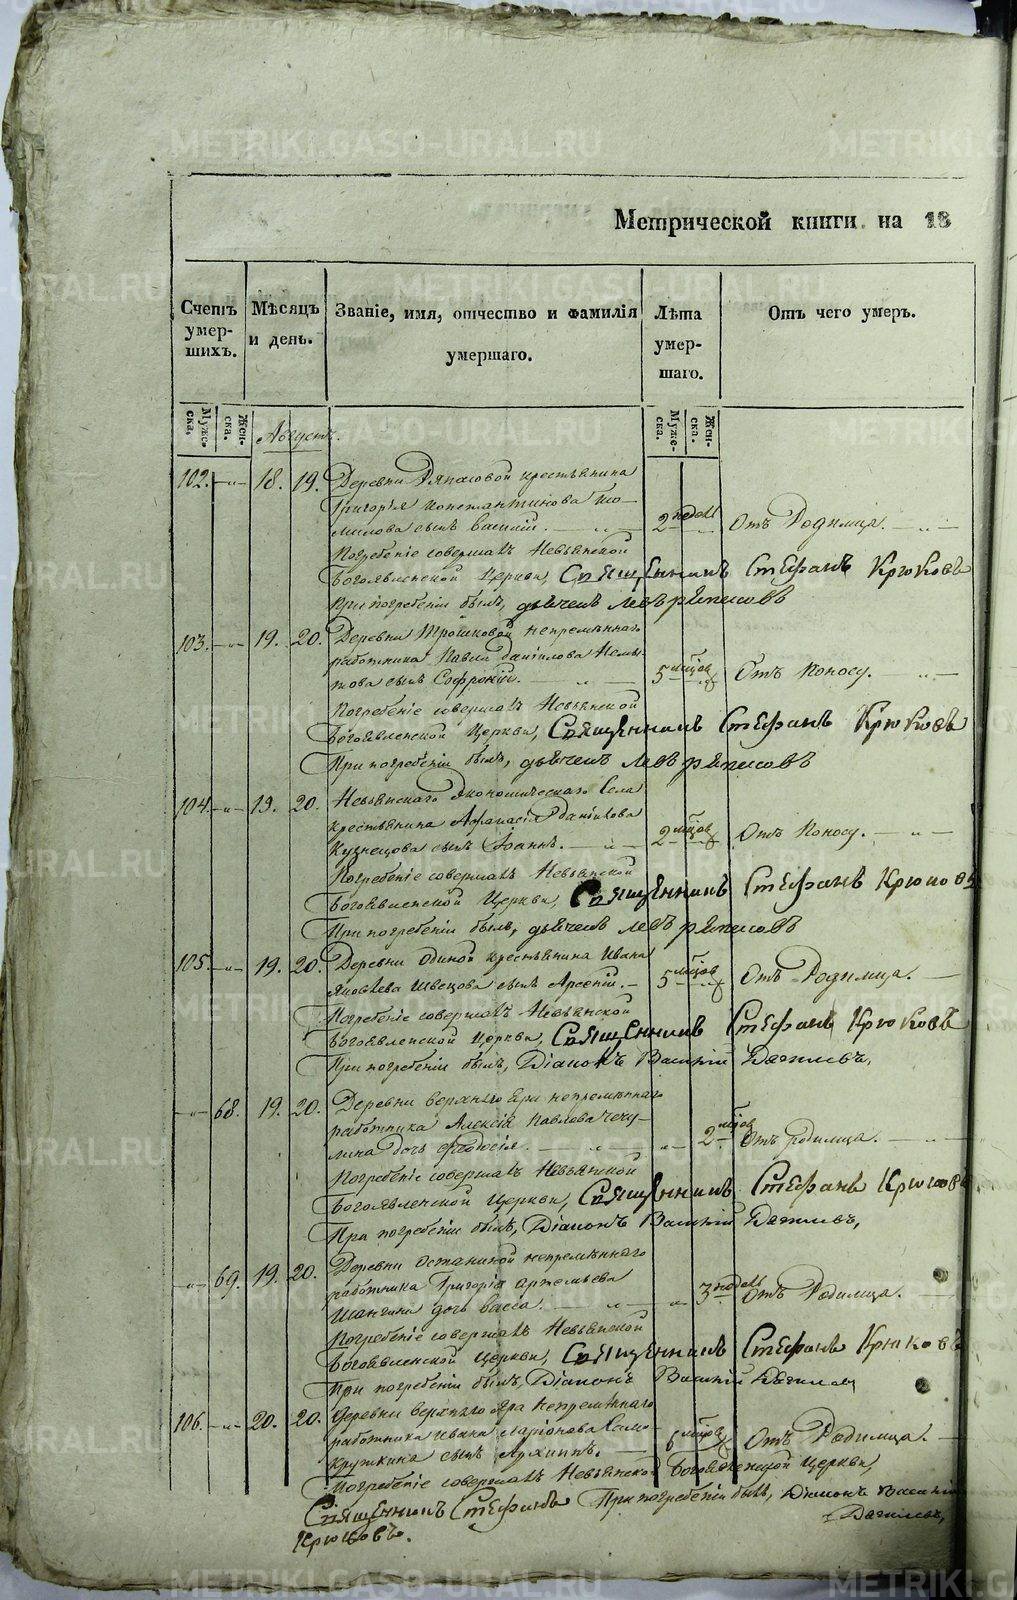 Метрической книги на 18
Счетъ умер- шихъ.
Мѣсяцъ и день.
Званіе, имя, отчество и фамилія умершаго.
Лѣта умер- шаго.
Отъ чего умеръ.
Муже- ска.
Жен- ска.
Муже- ска.
Жен- ска.
Августъ.
102. 18. 19. Деревни крестьянина
Григорія Константинова То-
милова сынъ Василій. 2 недел Отъ Родимца.
Погребеніе совершалъ Невьянской
Богоявленской Церкви, Священникъ Стефанъ Крюковъ
При погребеніи былъ, дьячекъ Левъ
103. 19. 20. Деревни непремѣннаго
работника Павла Данилова
сынъ Софроній. 5 мцов Отъ Поносу.
Погребеніе совершалъ Невьянской
Богоявленской Церкви, Священникъ Стефанъ Крюковъ
При погребеніи былъ, дьячекъ Левъ
104. 19. 20. Невьянскаго Экономическаго Села
крестьянина Афанасія Данилова
Кузнецова сынъ Іоаннъ. 2 мцов Отъ Поносу.
Погребеніе совершалъ Невьянской
Богоявленской Церкви, Священникъ Стефанъ Крюковъ
При погребеніи былъ, дьячекъ Левъ
105. 19. 20. Деревни Одиной крестьянина Ивана
Яковлева Швецова сынъ Арсеній. 5 мцов Отъ Родимца.
Погребеніе совершалъ Невьянской
Богоявленской Церкви, Священникъ Стефанъ Крюковъ
При погребеніи былъ, Діаконъ Василій
68. 19. 20. Деревни непремѣннаго
работника Алексія Павлова Чечу-
лина дочь Феодосія. 2 мцов Отъ родимца.
Погребеніе совершалъ Невьянской
Богоявленской Церкви, Священникъ Стефанъ Крюковъ
При погребеніи былъ, Діаконъ Василій
69. 19. 20. Деревни Останиной непремѣннаго
работника Григорія Артемьева
Шангина дочь Васса. 3 недел Отъ Родимца.
Погребеніе совершалъ Невьянской
Богоявленской Церкви, Священникъ Стефанъ Крюковъ
При погребеніи былъ, Діаконъ Василій
106. 20. 20. Деревни непремѣннаго
работника Ивана Ларіонова
сынъ 6 мцов Отъ Родимца.
Погребеніе совершалъ Невьянской Богоявленской Церкви,
Священникъ Стефанъ При погребеніи былъ, Діаконъ Василій
Крюковъ.
METRIKI.GASO-URAL.RU